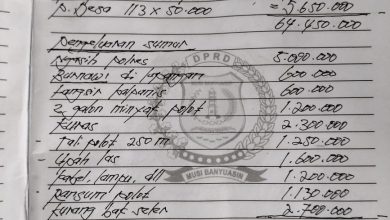 p. Besa 113 x 50.000 = 5.650.000
64.450.000
pengeluaran sumur
ngasih polres 5.000.000
Burnawi di lapangan 600.000
langsir 600.000
2 galon minyak polot 1.200.000
2.300.000
Tali polot 250 m 1.250.000
Upah las 1.600.000
Kabel, lampu, dll 1.200.000
Ransum polot 1.130.000
Kurang bak seler 2.700.000
DPRD
MUSI BANYUASIN